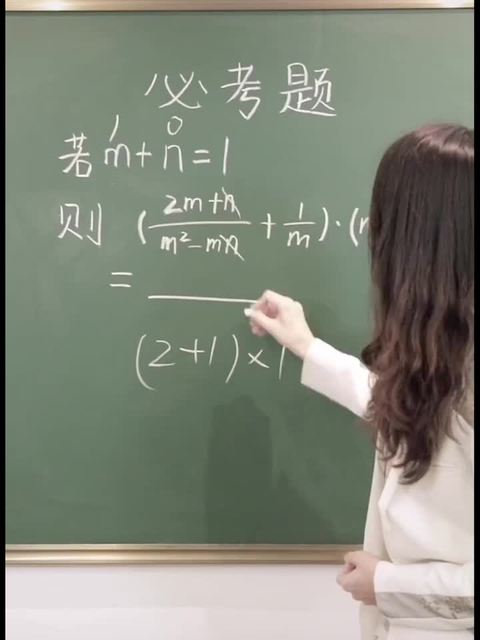 必考题
1 0
若m+n=1
则 (2m+n/m²-mn + 1/m)·(
=
(2+1)×1